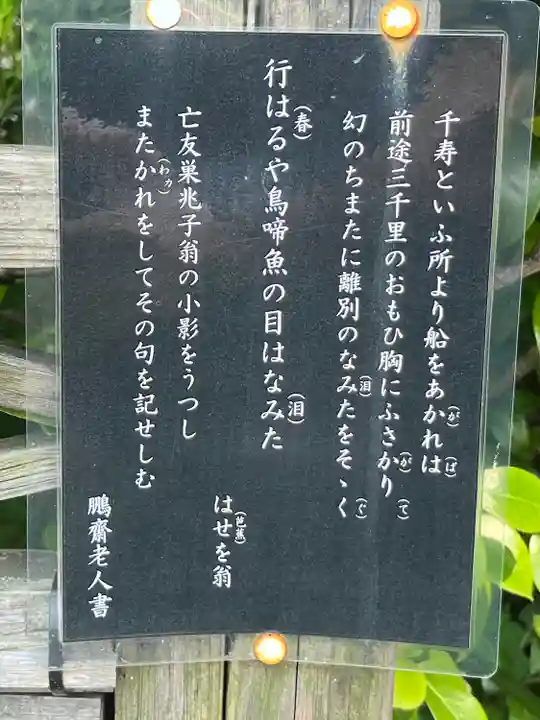 千寿といふ所より船をあかれは
(が)(ば)
前途三千里のおもひ胸にふさかり
(が)(て)
幻のちまたに離別のなみたをそゝく
(泪)(ぐ)
行はるや鳥啼魚の目はなみた
(春)(泪)
はせを翁
(芭蕉)
亡友巣兆子翁の小影をうつし
またかれをしてその句を記せしむ
(わカ)
鵬齋老人書